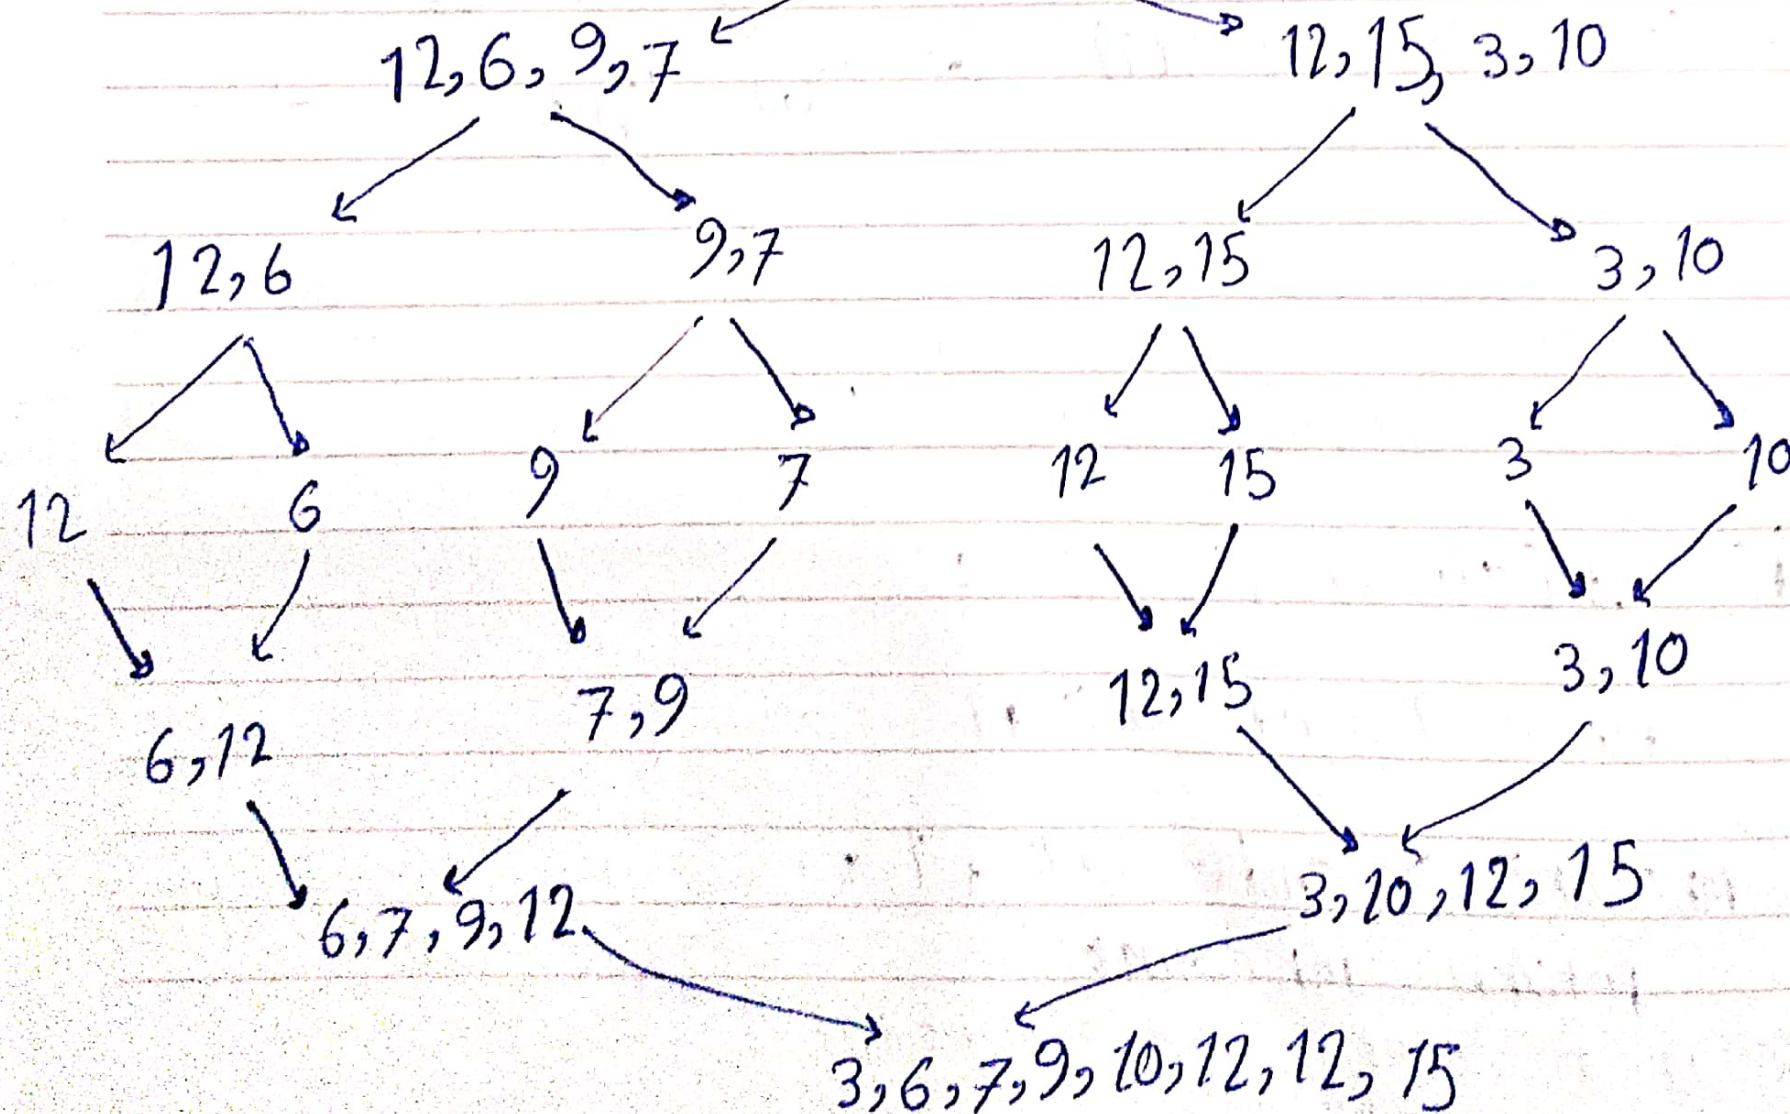 12,6,9,7 12,15,3,10
12,6 9,7 12,15 3,10
12 6 9 7 12 15 3 10
6,12 7,9 12,15 3,10
6,7,9,12 3,10,12,15
3,6,7,9,10,12,12,15